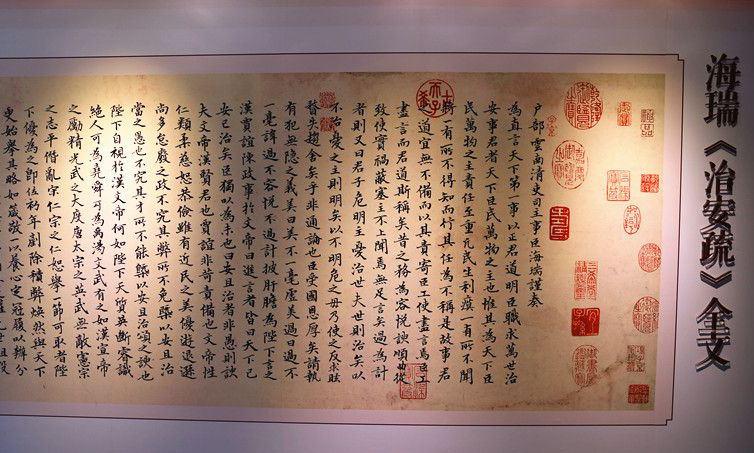 海瑞《治安疏》全文
户部雲南清吏司主事臣海瑞謹奏
為直言天下第一事以正君道明臣職求萬世治
安事君者天下臣民萬物之主也惟其為天下臣
民萬物之主責任至重凡民生利瘼一有所不聞
將一有所不得知而行其任為不稱是故事君
之道宜無不備而以其責寄臣工使盡言焉臣工
盡言而君道斯稱矣昔之務為容悅諛順曲從
致使實禍蔽塞主不上聞焉無足言矣過為計
者則又曰君子危明主憂治世夫世則治矣以
不治憂之主則明矣以不明危之毋乃使之反求眩
瞀失趨舍矣乎非通論也臣受國恩厚矣請執
有犯無隱之義美曰美不一毫虛美過曰過不
一毫諱過不容悅不過計披肝膽為陛下言之
漢賈誼陳政事於文帝曰進言者皆曰天下已
安已治矣臣獨以為未也曰安且治者非愚則諛
夫文帝漢賢君也賈誼非苛責備也文帝性
仁類柔慈恕恭儉雖有近民之美優遊退遜
尚多怠廢之政不究其弊所不免槩以安且治
當之愚也不究其才所不能槩以安且治頌之諛也
陛下自視於漢文帝何如陛下天質英斷睿識
絕人可為堯舜可為禹湯文武有之如漢宣帝
之勵精光武之大度唐太宗之英武無敵憲宗
之志平僭亂宋仁宗之仁恕舉一節可取者陛
下優為之即位初年剷除積弊煥然與天下
更始舉其略如箴敬一以養心定冠履以辨分